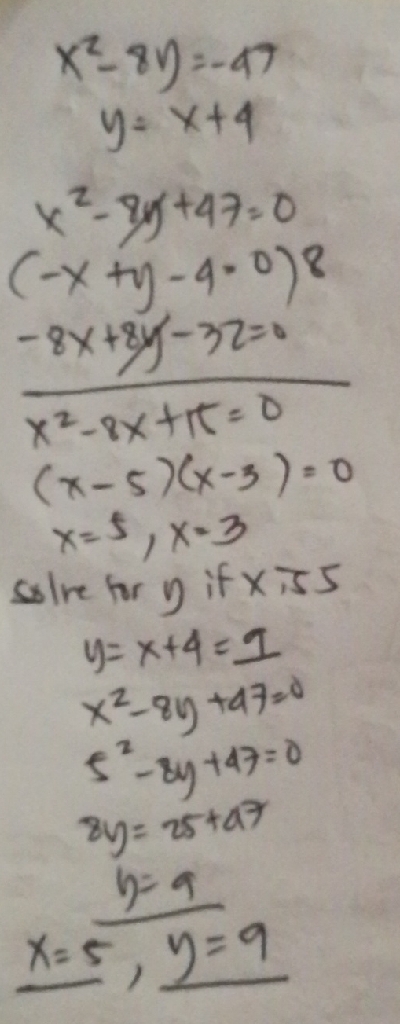 x²-8y=-47
y=x+4
x²-8y+47=0
(-x+y-4=0)8
-8x+8y-32=0
x²-8x+15=0
(x-5)(x-3)=0
x=5, x=3
solve for y if x is 5
y=x+4=9
x²-8y+47=0
5²-8y+47=0
8y=25+47
y=9
x=5, y=9